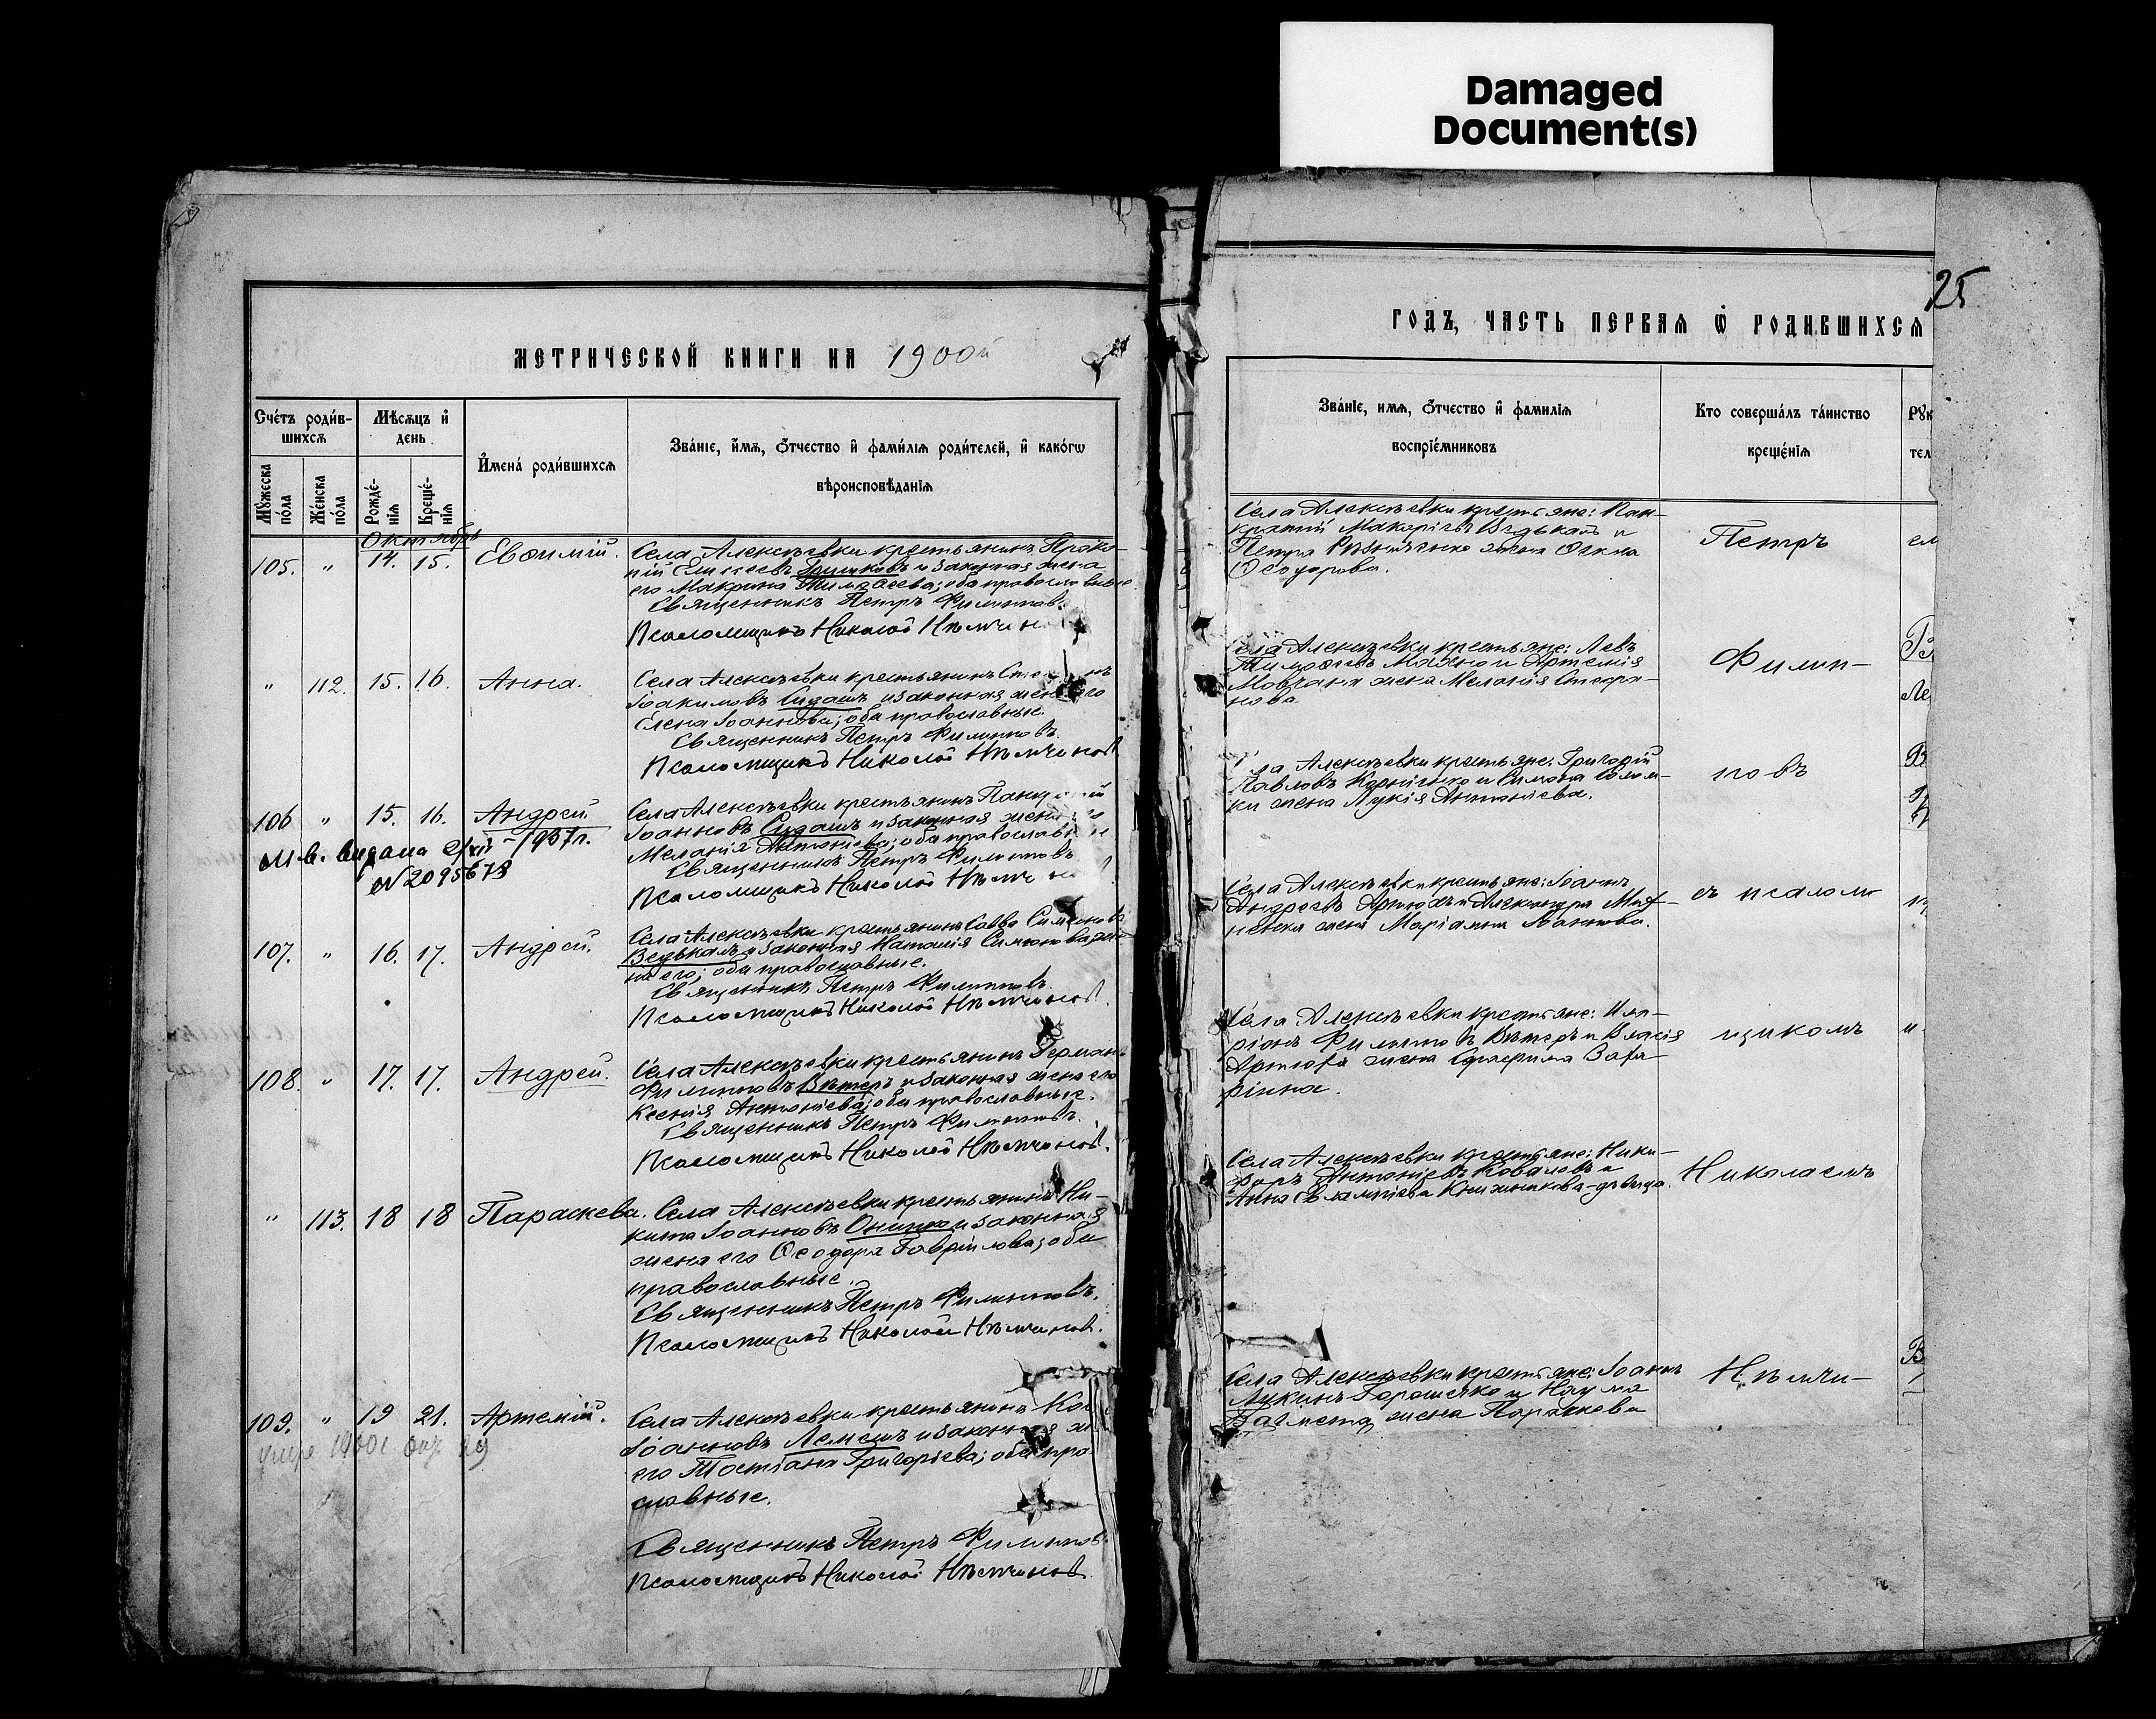 Damaged
Document(s)
25
МЕТРИЧЕСКОЙ КНИГИ НА 1900й
Счéтъ роди́в-
шихсѧ
Мѣсѧцъ и҆
день
Мꙋ́жеска
по́ла
Же́нска
по́ла
Рожде́-
нїѧ
Креще́-
нїѧ
И҆мена́ роди́вшихсѧ
Зва́нїе, и҆́мѧ, ѻ҆́тчество и҆ фами́лїѧ роди́телей, и҆ како́гѡ
вѣроисповѣ́данїѧ
Октябрь
105. " 14. 15. Евѳимій.
Села Алексѣевки крестьянинъ Проко-
пій Елисеевъ и законная жена
его Макрина Тимоѳеева; оба православные
Священникъ Петръ Филиппов
Псаломщикъ Николай Нѣмчинов
" 112. 15. 16. Анна.
Села Алексѣевки крестьянинъ
Іоакимовъ Сидашъ и законная жена его
Елена Іоаннова; оба православные.
Священникъ Петръ Филипповъ.
Псаломщикъ Николай Нѣмчиновъ
106 " 15. 16. Андрей.
М. в. видана 2/XII – 1937 г.
№ 2095673
Села Алексѣевки крестьянинъ
Іоанновъ Сидашъ и законная жена
Меланія Антоніева; оба православные
Священникъ Петръ Филипповъ
Псаломщикъ Николай Нѣмчинов
107. " 16. 17. Андрей.
Села Алексѣевки крестьянинъ Савва Симеоновъ
Ведькалъ и законная Наталія Симеонова же-
на его; оба православные.
Священникъ Петръ Филипповъ.
Псаломщикъ Николай Нѣмчиновъ.
108. " 17. 17. Андрей.
Села Алексѣевки крестьянинъ Германъ
Филипповъ Вѣтеръ и законная жена его
Ксенія Антоніева; оба православные.
Священникъ Петръ Филипповъ.
Псаломщикъ Николай Нѣмчиновъ.
" 113. 18 18 Параскева.
Села Алексѣевки крестьянинъ Ни-
кита Іоанновъ Онипко и законная
жена его Ѳеодора Гавріилова; оба
православные.
Священникъ Петръ Филипповъ.
Псаломщикъ Николай Нѣмчиновъ.
109. " 19 21. Артемій.
Села Алексѣевки крестьянинъ
Іоанновъ Лемешъ и законная
его Татіана Григоріева; оба пра
славные.
Священникъ Петръ Филиппов
Псаломщикъ Николай Нѣмчиновъ
ГОДЪ, ЧАСТЬ ПЕРВАѦ Ѡ҆ РОДИВШИХСѦ
Зва́нїе, имѧ, ѻ҆́тчество и҆ фамилїѧ
воспрїе́мниковъ
Кто соверша́лъ та́инство
креще́нїѧ
Рꙋк
тел
Села Алексѣевки крестьяне: Пан-
кратій Макаріевъ Ведькалъ и
Петра жена
Ѳеодорова.
Петръ
Села Алексѣевки крестьяне: Левъ
Тимоѳеевъ Махно и Артемія
Мовчана жена Меланія Стефа-
нова
Филип-
ла Алексѣевки крестьяне: Григорій
Павловъ Корніенко и Симеона
жена Лукія Антоніева.
повъ
Села Алексѣевки крестьяне: Іоаннъ
Андреевъ Артюхъ и Александра
жена Маріамна Іоаннова.
съ псалом-
Села Алексѣевки крестьяне: Ила-
ріонъ Филипповъ Вѣтеръ и Власія
Артюха жена Серафима Заха-
ріина.
щикомъ
Села Алексѣевки крестьяне: Ники-
форъ Антоніевъ Ковалевъ и
Анна Евлампіева дѣвица.
Николаемъ
Села Алексѣевки крестьяне: Іоаннъ
Лукинъ и Наума
жена Параскева
Нѣмчи-